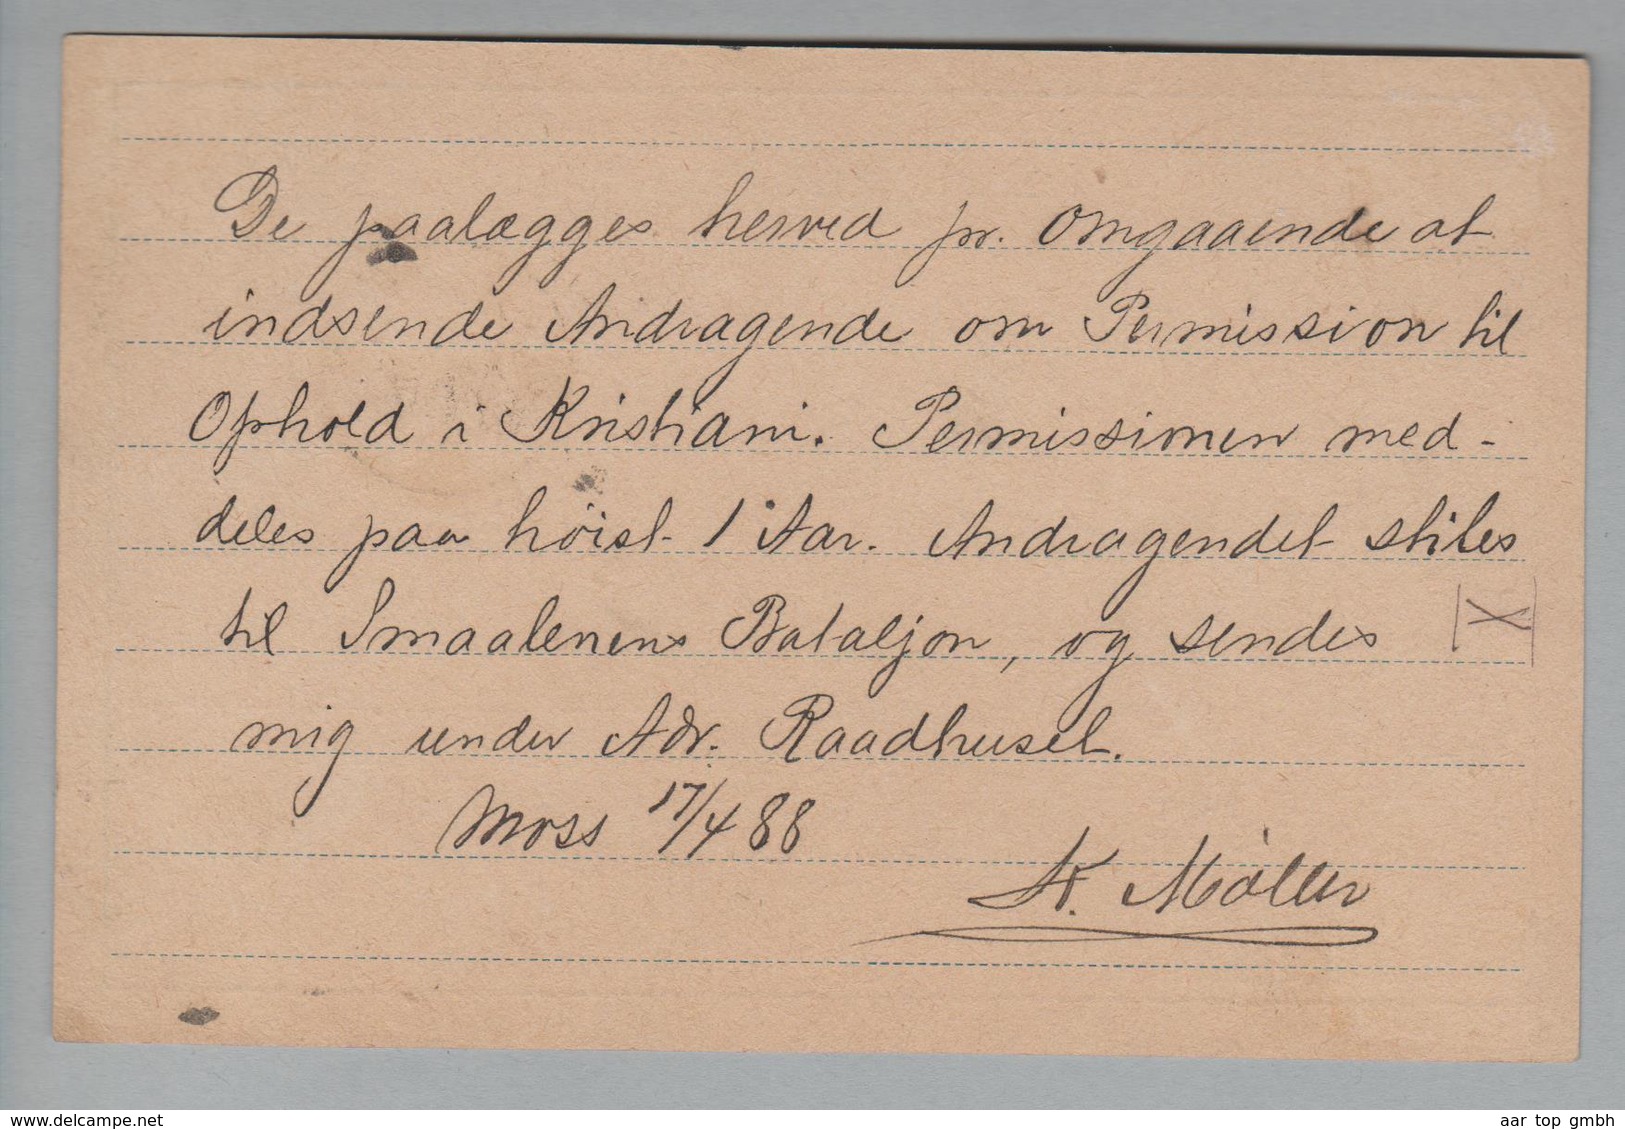 De paalægges herved pr. Omgaaende at
indsende Andragende om Permission til
Ophold i Kristiani. Permissionen med-
deles paa höist 1 Aar. Andragendet stiles
til Smaalenens Bataljon, og sendes
mig under Adr. Raadhuset.
Moss 17/4 88
Möller
aar top gmbh
www.delcampe.net